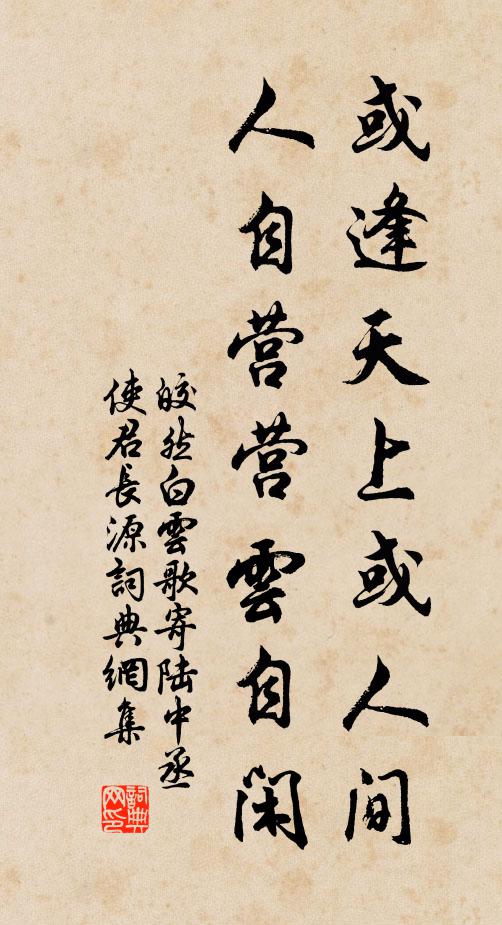 或逢天上或人间
人自营营雲自闲
皎然白雲歌寄陆中丞
使君長源詞典網集
詞典
网印